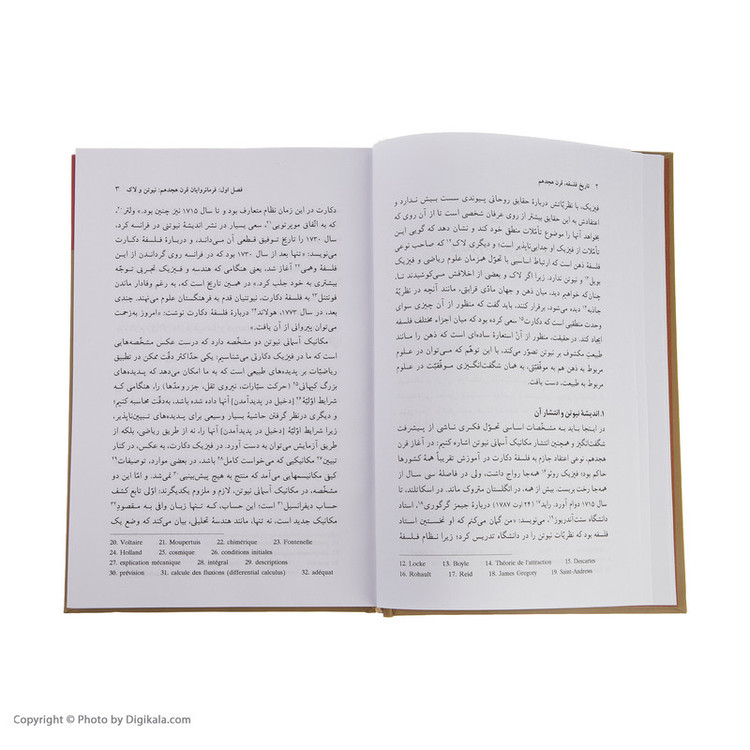 ۲ تاریخ فلسفه، قرن هجدهم
فیزیک، با نظریّاتش دربارهٔ حقایق روحانی پیوندی سست بیش ندارد و
اعتقادش به این حقایق بیشتر از روی عرفان شخصی است تا از آن روی که
بخواهد آنها را موضوع تأمّلات منطق خود کند و نشان دهد که گویی این
تأمّلات از فیزیک او جدایی‌ناپذیر است؛ و دیگری لاک۱۲ که صاحب نوعی
فلسفهٔ ذهن است که ارتباط اساسی با تحوّل همزمان علوم ریاضی و فیزیک
بویل۱۳ و نیوتن ندارد. زیرا اگر لاک و بعضی از اخلافش می‌کوشیدند تا،
چنان‌که خواهیم دید، میان ذهن و جهان مادّی قرابتی، مانند آنچه در نظریّهٔ
جاذبه۱۴ دیده می‌شود، برقرار کنند، باید گفت که منظور از آن چیزی سوای
وحدت منطقی است که دکارت۱۵ سعی کرده بود که میان اجزاء مختلف فلسفه
ایجاد کند. در حقیقت، منظور از آن استعارهٔ ساده‌ای است که ذهن را مانند
طبیعتِ مکشوف بر نیوتن تصوّر می‌کند، با این توهّم که می‌توان در علوم
مربوط به ذهن هم به موفّقیّتی، به همان شگفت‌انگیزیِ موفّقیّت در علوم
مربوط به طبیعت، دست یافت.
۱. اندیشهٔ نیوتن و انتشار آن
در اینجا باید به مشخّصات اساسی تحوّل فکری ناشی از پیشرفت
شگفت‌انگیز و همچنین انتشار مکانیک آسمانی نیوتن اشاره کنیم: در آغاز قرن
هجدهم، نوعی اعتقاد جازم به فلسفهٔ دکارت در آموزش تقریباً همهٔ کشورها
حاکم بود؛ فیزیک روئو۱۶ همه‌جا رواج داشت، ولی در فاصلهٔ سی سال از
همه‌جا رخت بربست. بیش از همه، در انگلستان متروک ماند. در اسکاتلند، تا
سال ۱۷۱۵ دوام آورد. راید۱۷ (۲۴ اوت ۱۷۸۷) دربارهٔ جیمز گرگوری۱۸، استاد
دانشگاه سنت‌آندریوز۱۹، می‌نویسد: «من گمان می‌کنم که او نخستین استاد
فلسفه بود که نظریّات نیوتن را در دانشگاه تدریس کرد؛ زیرا نظام فلسفهٔ
12. Locke 13. Boyle 14. Théorie de l'attraction 15. Descartes
16. Rohault 17. Reid 18. James Gregory 19. Saint-Andrews
فصل اول: فرمانروایان قرن هجدهم: نیوتن و لاک ۳
دکارت در این زمان نظام متعارف بود و تا سال ۱۷۱۵ نیز چنین بود.» ولتر۲۰،
که به اتّفاق موپرتویی۲۱، سعی بسیار در نشر اندیشهٔ نیوتن در فرانسه کرد،
۱۷۳۰ را تاریخ توفیق قطعی آن می‌داند، و دربارهٔ فلسفهٔ دکارت
می‌نویسد: «تنها بعد از سال ۱۷۳۰ بود که در فرانسه روی گرداندن از این
فلسفهٔ وهمی۲۲ آغاز شد، یعنی هنگامی که هندسه و فیزیک تجربی توجّه
بیشتری به خود جلب کرد.» در همین تاریخ است که، به رغم وفادار ماندن
فونتنل۲۳ به فلسفهٔ دکارت، نیوتنیان قدم به فرهنگستان علوم می‌نهند. چندی
بعد، در سال ۱۷۷۳، هولاند۲۴ دربارهٔ فلسفهٔ دکارت نوشت: «امروز به‌زحمت
می‌توان پیروانی از آن یافت».
مکانیک آسمانی نیوتن دو مشخّصه دارد که درست عکس مشخّصه‌هایی
است که ما در فیزیک دکارتی می‌شناسیم: یکی حدّاکثر دقّت ممکن در تطبیق
ریاضیّات بر پدیده‌های طبیعی است که به ما امکان می‌دهد که پدیده‌های
بزرگ کیهانی۲۵ (حرکت سیّارات، نیروی ثقل، جزر و مدّها) را، هنگامی که
شرایط اوّلیّهٔ۲۶ [دخیل در پدیدآمدن] آنها داده شده باشد، به‌دقّت محاسبه کنیم؛
و دیگری درنظر گرفتن حاشیهٔ بسیار وسیعی برای پدیده‌های تبیین‌ناپذیر،
زیرا شرایط اوّلیّهٔ [دخیل در پدیدآمدن] آنها را، نه از طریق ریاضی، بلکه از
طریق آزمایش می‌توان به دست آورد. در فیزیک دکارت، به عکس، در کنار
تبیین۲۷ مکانیکیی که می‌خواست کامل۲۸ باشد، در بعضی موارد، توصیفات۲۹
کیفی مکانیسمهایی می‌آمد که منتج به هیچ پیش‌بینیی۳۰ نمی‌شد. و امّا این دو
مشخّصه، در مکانیک آسمانی نیوتن، لازم و ملزوم یکدیگرند: اوّلی تابع کشف
حساب دیفرانسیل۳۱ است؛ این حساب، که تنها زبان وافی به مقصودِ۳۲
مکانیک جدید است، نه تنها، مانند هندسهٔ تحلیلی، بیان می‌کند که وضع یک
20. Voltaire 21. Moupertuis 22. chimérique 23. Fontenelle
24. Holland 25. cosmique 26. conditions initiales
27. explication mécanique 28. intégral 29. descriptions
30. prévision 31. calcule des fluxions (differential calculus) 32. adéquat
Copyright © Photo by Digikala.com